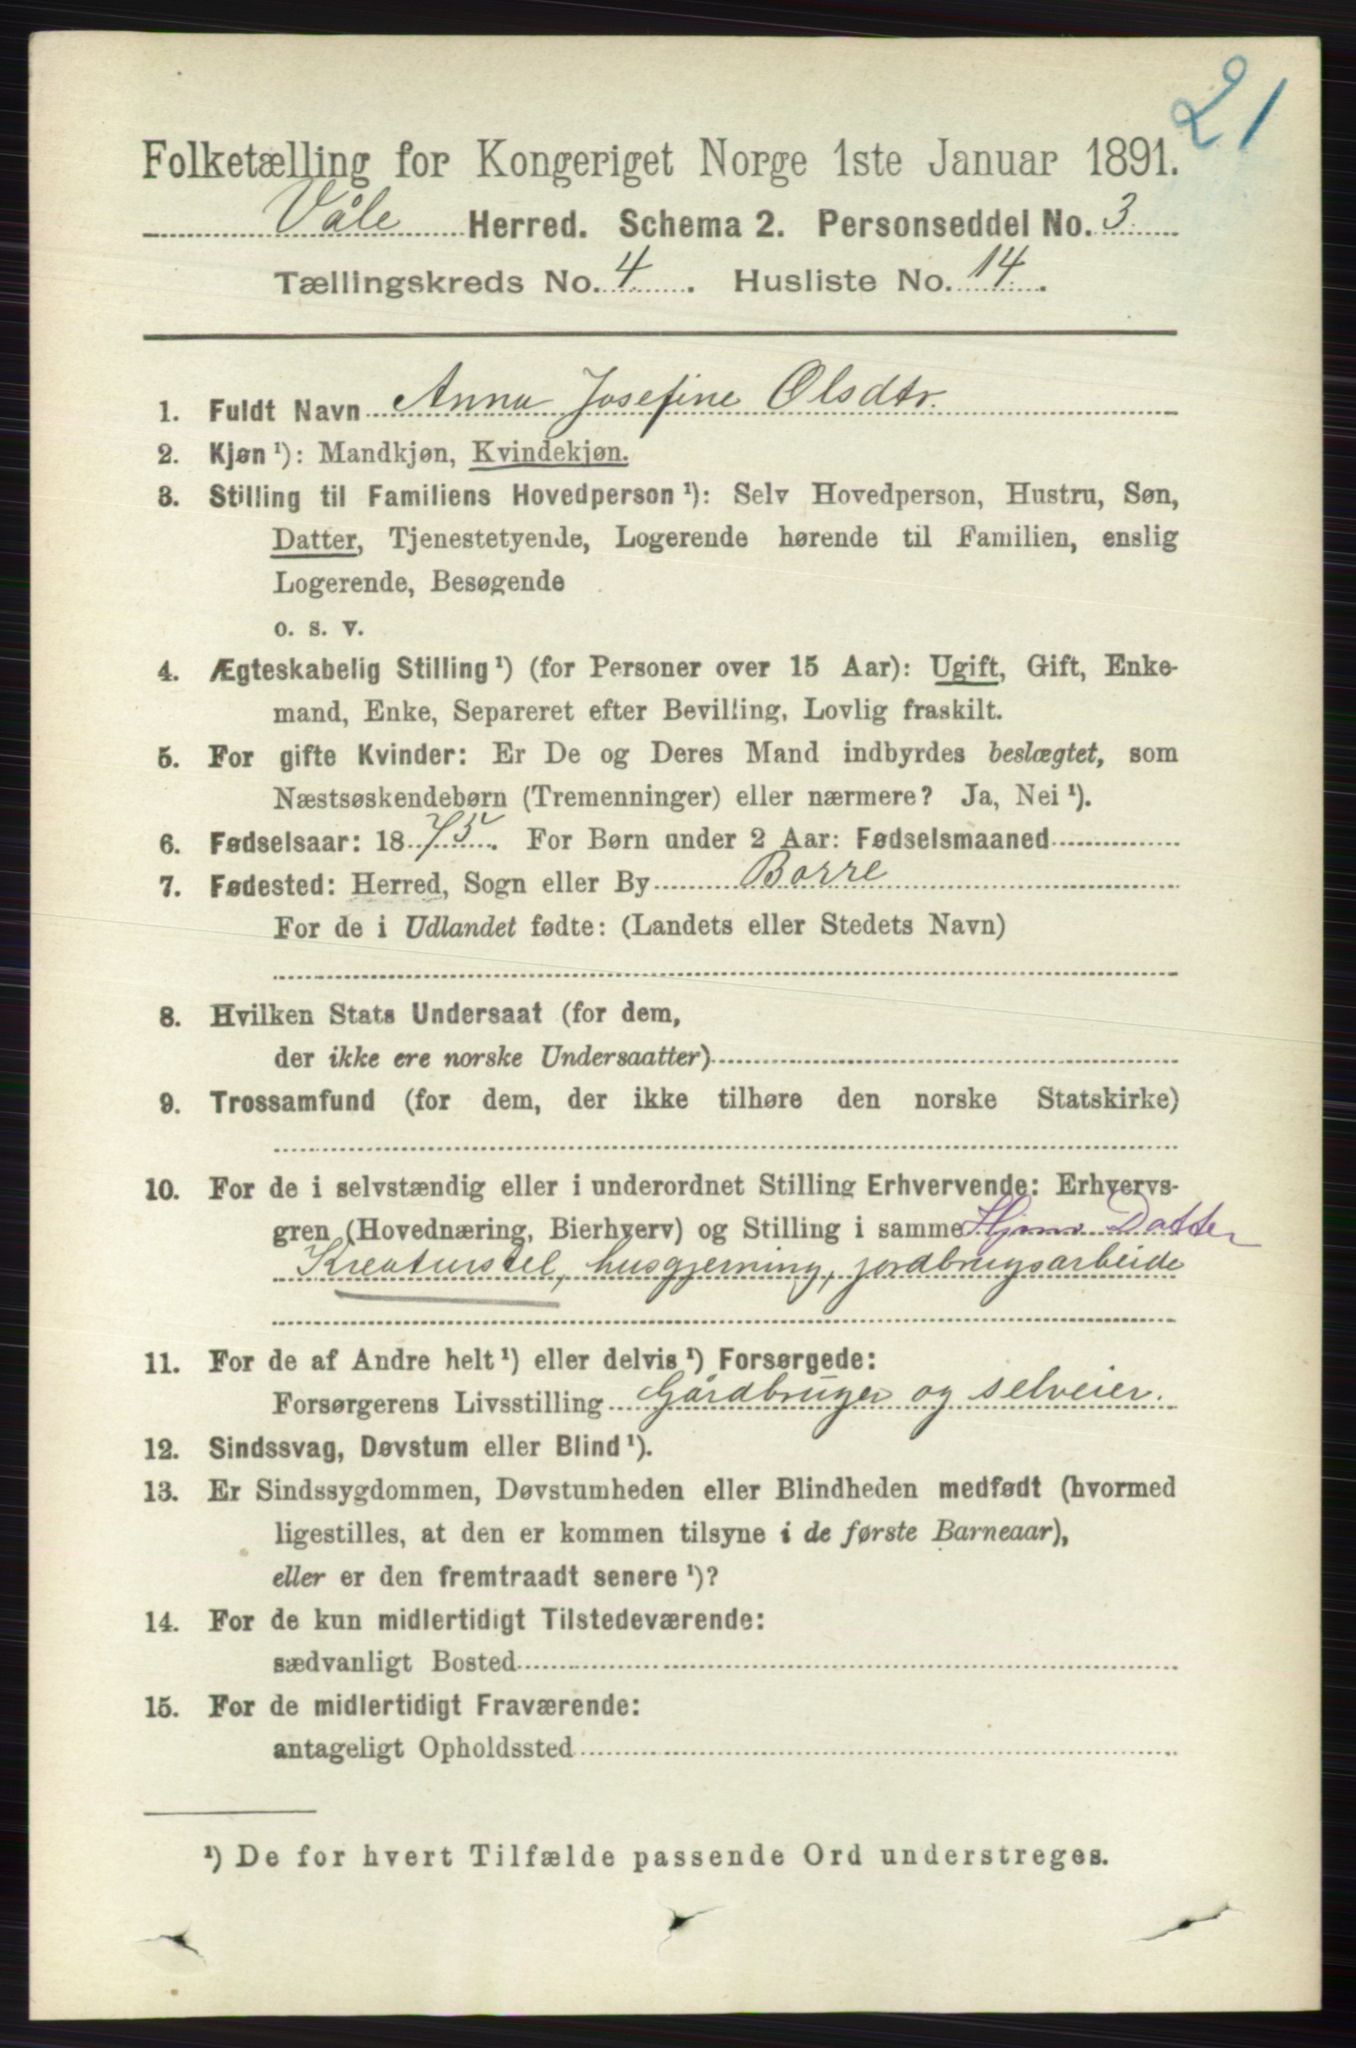 21
Folketælling for Kongeriget Norge 1ste Januar 1891.
Våle Herred. Schema 2. Personseddel No. 3
Tællingskreds No. 4. Husliste No. 14.
1. Fuldt Navn Anna Josefine Olsdtr.
2. Kjøn ¹): Mandkjøn, Kvindekjøn.
3. Stilling til Familiens Hovedperson ¹): Selv Hovedperson, Hustru, Søn,
Datter, Tjenestetyende, Logerende hørende til Familien, enslig
Logerende, Besøgende
o. s. v.
4. Ægteskabelig Stilling ¹) (for Personer over 15 Aar): Ugift, Gift, Enke-
mand, Enke, Separeret efter Bevilling, Lovlig fraskilt.
5. For gifte Kvinder: Er De og Deres Mand indbyrdes beslægtet, som
Næstsøskendebørn (Tremenninger) eller nærmere? Ja, Nei ¹).
6. Fødselsaar: 1875. For Børn under 2 Aar: Fødselsmaaned
7. Fødested: Herred, Sogn eller By Borre
For de i Udlandet fødte: (Landets eller Stedets Navn)
8. Hvilken Stats Undersaat (for dem,
der ikke ere norske Undersaatter)
9. Trossamfund (for dem, der ikke tilhøre den norske Statskirke)
10. For de i selvstændig eller i underordnet Stilling Erhvervende: Erhvervs-
gren (Hovednæring, Bierhverv) og Stilling i samme Hjmv. Datter
Kreaturstel, husgjerning, jordbrugsarbeide
11. For de af Andre helt ¹) eller delvis ¹) Forsørgede:
Forsørgerens Livsstilling Gårdbruger og selveier.
12. Sindssvag, Døvstum eller Blind ¹).
13. Er Sindssygdommen, Døvstumheden eller Blindheden medfødt (hvormed
ligestilles, at den er kommen tilsyne i de første Barneaar),
eller er den fremtraadt senere ¹)?
14. For de kun midlertidigt Tilstedeværende:
sædvanligt Bosted
15. For de midlertidigt Fraværende:
antageligt Opholdssted
¹) De for hvert Tilfælde passende Ord understreges.